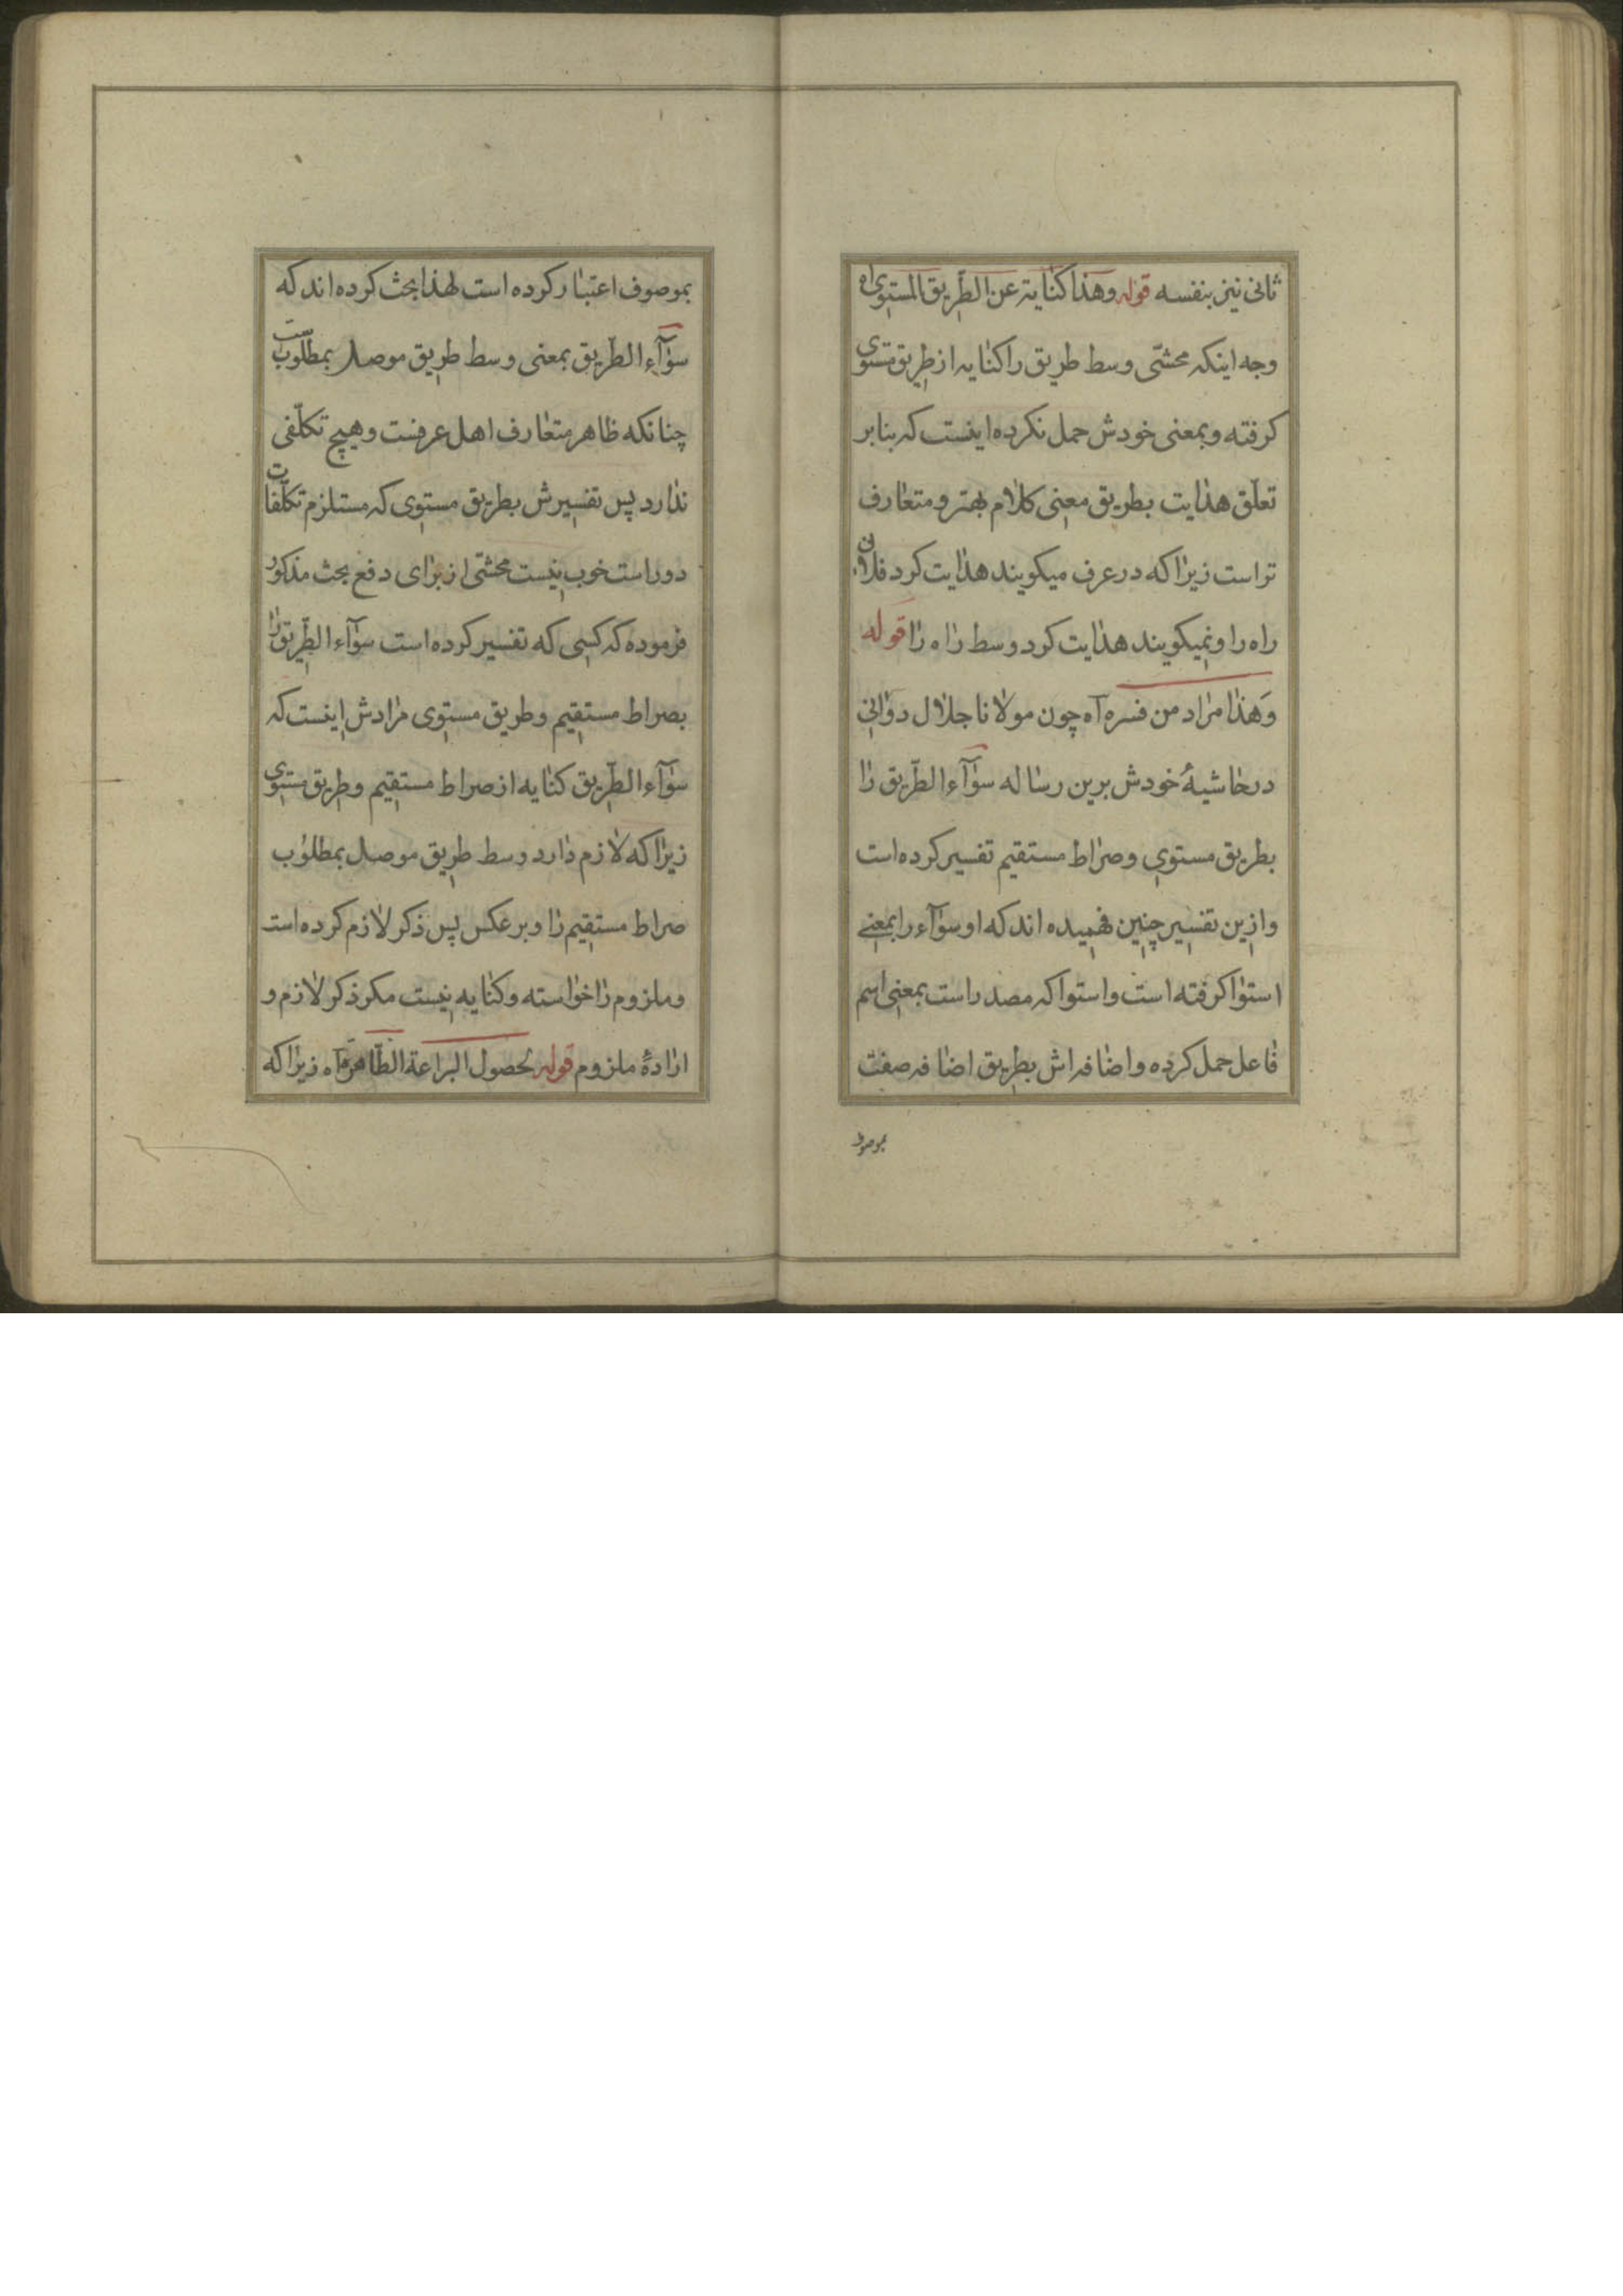 ثانی نیز بنفسه قوله وهذا کنایة عن الطّریق المستوی اه
وجه اینکه محشّی وسط طریق را کنایه از طریق مستوی
کرفته و بمعنی خودش حمل نکرده اینست که بنابر
تعلّق هدایت بطریق معنی کلام بهتر و متعارف
تر است زیرا که در عرف میکویند هدایت کرد فلان
راه را و نمیکویند هدایت کرد وسط راه را قوله
وَهذا مراد من فسره آه چون مولانا جلال دوانی
در حاشیهٔ خودش برین رساله سوآء الطّریق را
بطریق مستوی و صراط مستقیم تفسیر کرده است
و ازین تفسیر چنین فهمیده اند که او سوآء را بمعنی
استوا کرفته است و استوا که مصدر است بمعنی اسم
فاعل حمل کرده و اضافه اش بطریق اضافه صفت
بموصوف
بموصوف اعتبار کرده است لهذا بحث کرده اند که
سوآء الطّریق بمعنی وسط طریق موصل بمطلوبست
چنانکه ظاهر متعارف اهل عرفست و هیچ تکلّفی
ندارد پس تفسیرش بطریق مستوی که مستلزم تکلّفات
دور است خوب نیست محشّی از برای دفع بحث مذکور
فرموده که کسی که تفسیر کرده است سوآء الطّریق را
بصراط مستقیم و طریق مستوی مرادش اینست که
سوآء الطّریق کنایه از صراط مستقیم و طریق مستوی
زیرا که لازم دارد وسط طریق موصل بمطلوب
صراط مستقیم را و برعکس پس ذکر لازم کرده است
و ملزوم را خواسته و کنایه نیست مکر ذکر لازم و
ارادهٔ ملزوم قوله لحصول البراعة الظّاهرة آه زیرا که